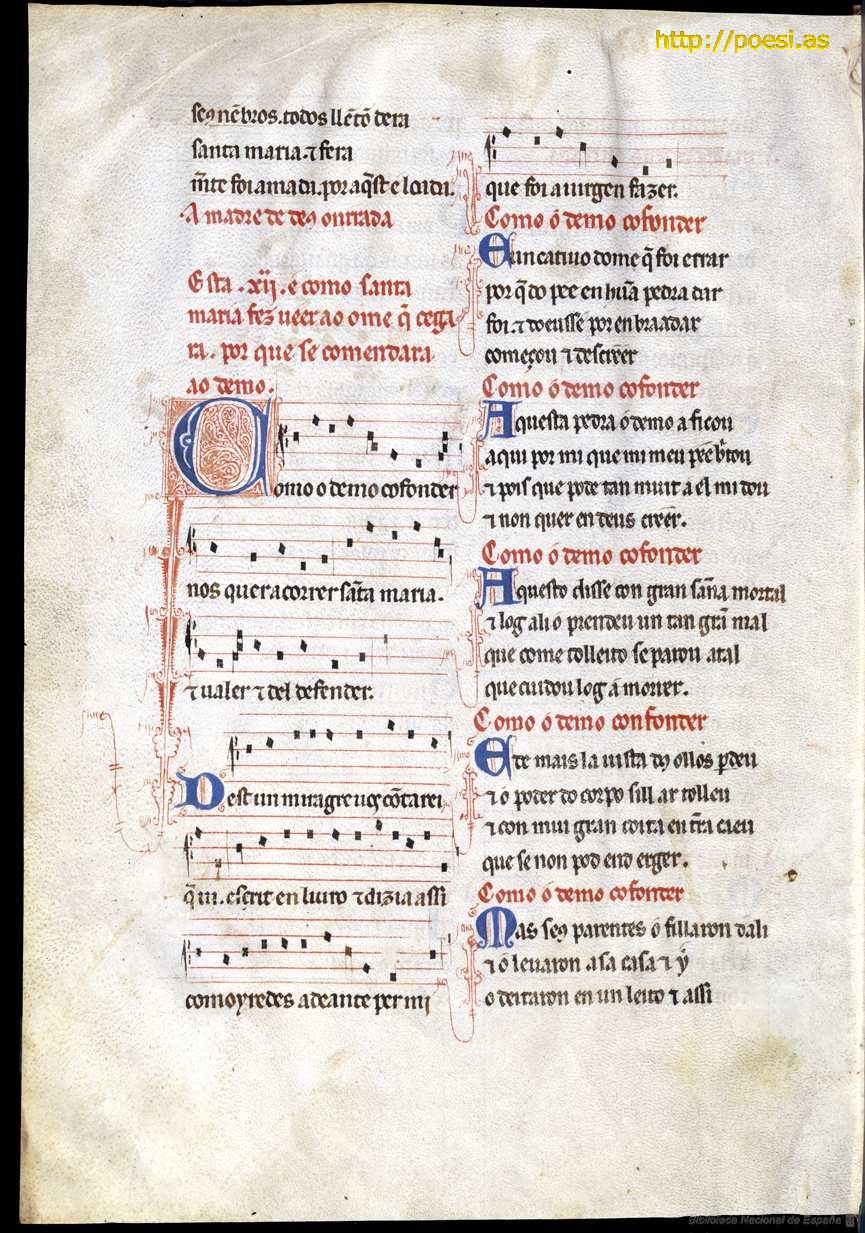 http://poesi.as
seꝯ nẽbros. todos llẽtõ dera
santa maria. ⁊ fera
m̃te foi amada. por aq̃st e loada.
A madre de deꝯ onrrada
Esta .xij. e como santa
maria fez ueer ao ome q̃ cega
ra. por que se comendara
ao demo.
Como o demo cofonder
nos quer acorrer sãta maria.
⁊ ualer ⁊ del defender.
Dest un miragre uꝯ cõtarei
q̃ iii. escrit en liuro ⁊ dizia assi
como yredes adeante per mi
que foi a uirgen fazer.
Como o demo cofonder
E un catiuo dome q̃ foi errar
por q̃ do pee en hũa pedra dar
foi. ⁊ doeusse por en braadar
começou ⁊ descreer
Como o demo cofonder
Aquesta pedra o demo a ficou
aqui por mi que mi meu pee
⁊ pois que pode tan muit a el mi dou
⁊ non quer en deus creer.
Como o demo cofonder
Aquesto disse con gran sãna mortal
⁊ log ali o prendeu un tan grã mal
que come tolleito se parou atal
que cuidou log a morrer.
Como o demo confonder
E de mais la uista dꝯ ollos ꝑdeu
⁊ o poder do corpo sill ar tolleu
⁊ con mui gran coita en tr̃a caeu
que se non pod end erger.
Como o demo cofonder
Mas seꝯ parentes o fillaron dali
⁊ o leuaron a sa casa ⁊ y
o deitaron en un leito ⁊ assi
Biblioteca Nacional de España